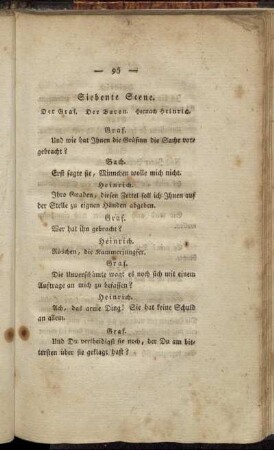 — 95 —
Siebente Scene.
Der Graf. Der Baron. Heinrich.
Graf.
Und wie hat Ihnen die Gräfinn die Sache vor-
gebracht?
Bach.
Erst sagte sie, Minchen wolle mich nicht.
Heinrich.
Ihro Gnaden, diesen Zettel soll ich Ihnen auf
der Stelle zu eignen Händen abgeben.
Graf.
Wer hat ihn gebracht?
Heinrich.
Röschen, die Kammerjungfer.
Graf.
Die Unverschämte wagt es noch sich mit einem
Auftrage an mich zu befassen?
Heinrich.
Ach, das arme Ding! Sie hat keine Schuld
an allem.
Graf.
Und Du vertheidigst sie noch, der Du am bit-
tersten über sie geklagt hast?